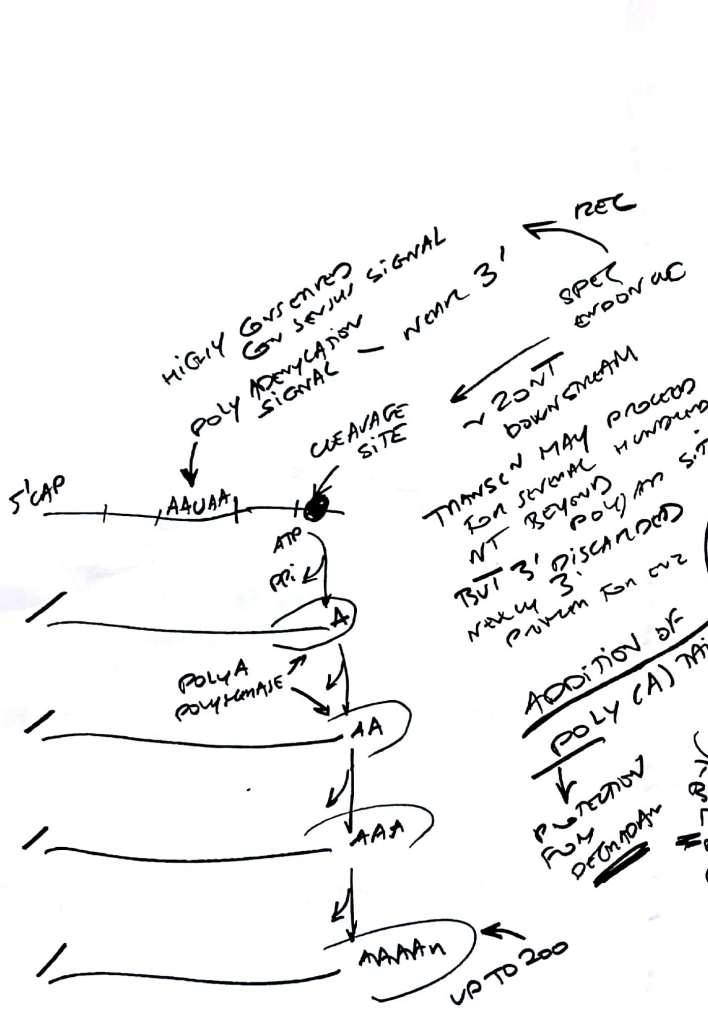 REC
SPEC
ENDONUC
HIGHLY CONSERVED
CONSENSUS SIGNAL
POLY ADENYLATION
SIGNAL — NEAR 3'
CLEAVAGE
SITE
~ 20 NT
DOWNSTREAM
TRANSCN MAY PROCEED
FOR SEVERAL HUNDRED
NT BEYOND
POLY(A) SIT
BUT 3' DISCARDED
NEWLY 3'
FOR ENZ
5'CAP
AAUAA
ATP
PPi
A
POLYA
POLYMERASE
AA
AAA
AAAAn
UP TO 200
ADDITION OF
POLY (A) TAI
PROTECTION
FROM
DEGRADAN